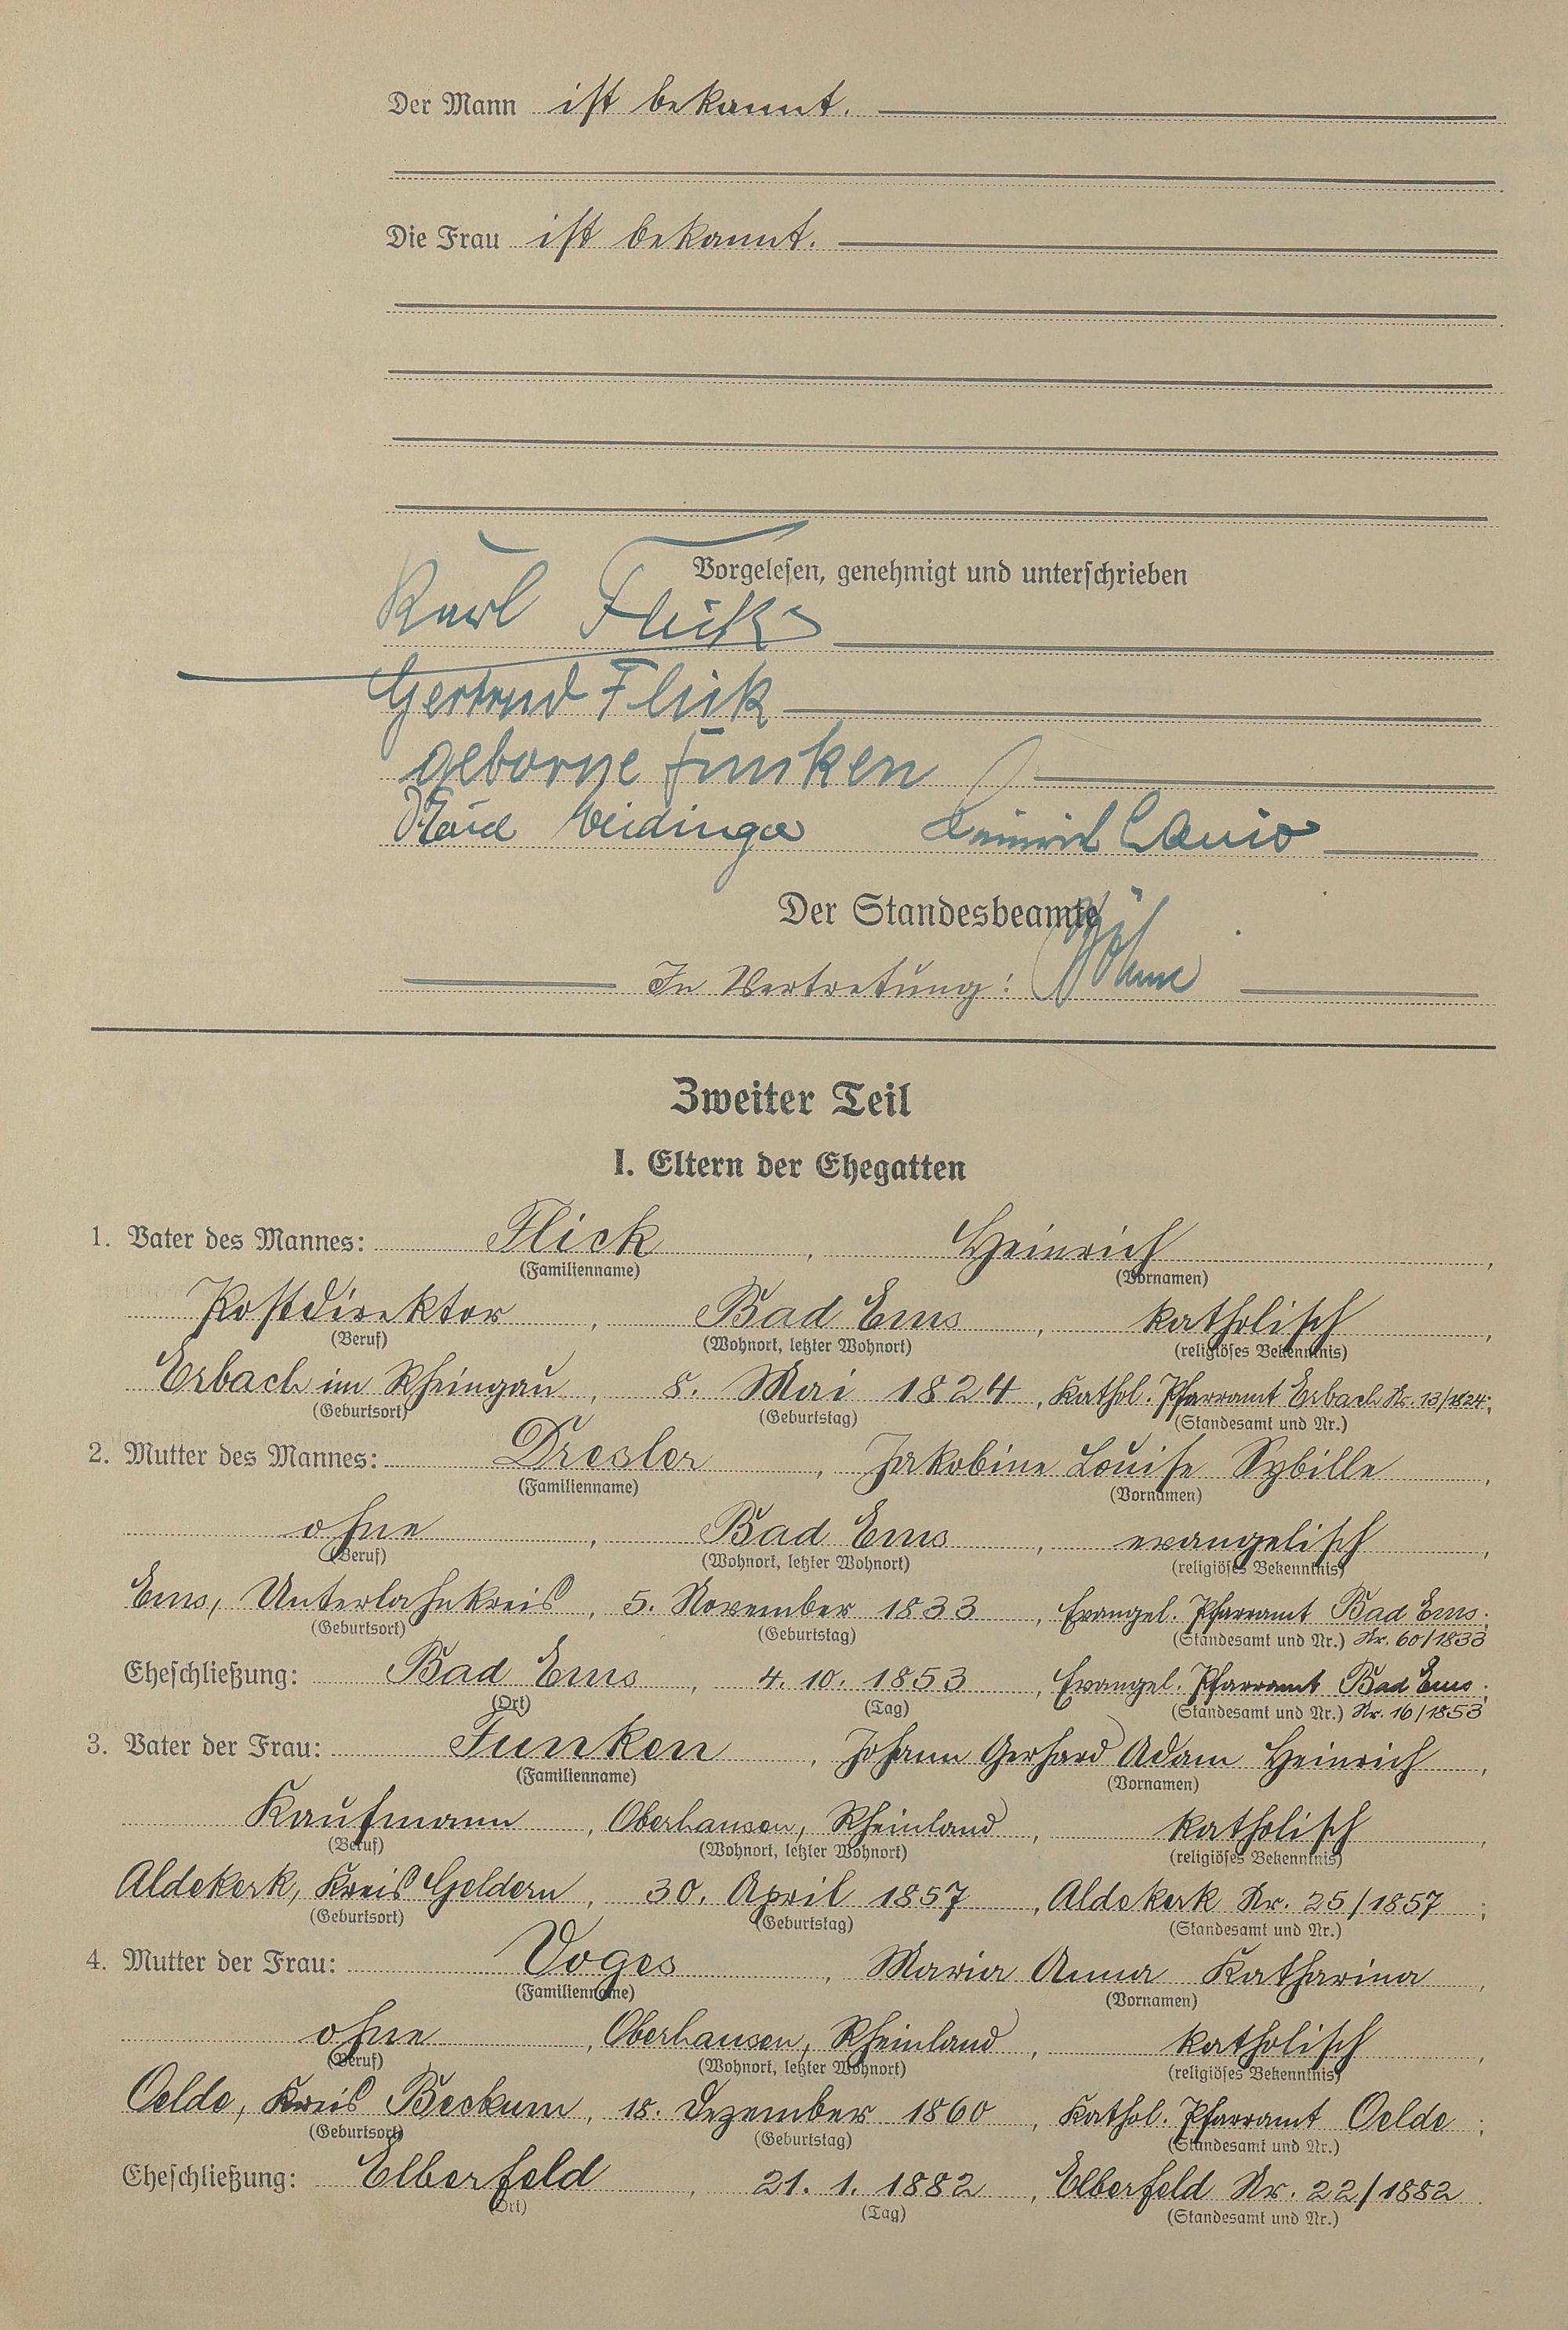 Der Mann ist bekannt.
Die Frau ist bekannt.
Vorgelesen, genehmigt und unterschrieben
Karl Flick
Gertrud Flick
geborne Funken
Weidinger Heinrich
Der Standesbeamte
In Vertretung: Böhme
Zweiter Teil
I. Eltern der Ehegatten
1. Vater des Mannes: Flick, Heinrich,
(Familienname) (Vornamen)
Postdirektor, Bad Ems, katholisch,
(Beruf) (Wohnort, letzter Wohnort) (religiöses Bekenntnis)
Erbach im Rheingau, 8. Mai 1824, Kathol. Pfarramt Erbach Nr. 13/1824;
(Geburtsort) (Geburtstag) (Standesamt und Nr.)
2. Mutter des Mannes: Dresler, Jakobine Louise Sybille,
(Familienname) (Vornamen)
ohne, Bad Ems, evangelisch,
(Beruf) (Wohnort, letzter Wohnort) (religiöses Bekenntnis)
Ems, Unterlahnkreis, 5. November 1833, Evangel. Pfarramt Bad Ems;
(Geburtsort) (Geburtstag) (Standesamt und Nr.) Nr. 60/1833
Eheschließung: Bad Ems, 4. 10. 1853, Evangel. Pfarramt Bad Ems;
(Ort) (Tag) (Standesamt und Nr.) Nr. 16/1853
3. Vater der Frau: Funken, Johann Gerhard Adam Heinrich,
(Familienname) (Vornamen)
Kaufmann, Oberhausen, Rheinland, katholisch,
(Beruf) (Wohnort, letzter Wohnort) (religiöses Bekenntnis)
Aldekerk, Kreis Geldern, 30. April 1857, Aldekerk Nr. 25/1857;
(Geburtsort) (Geburtstag) (Standesamt und Nr.)
4. Mutter der Frau: Voges, Maria Anna Katharina,
(Familienname) (Vornamen)
ohne, Oberhausen, Rheinland, katholisch,
(Beruf) (Wohnort, letzter Wohnort) (religiöses Bekenntnis)
Oelde, Kreis Beckum, 18. Dezember 1860, Kathol. Pfarramt Oelde;
(Geburtsort) (Geburtstag) (Standesamt und Nr.)
Eheschließung: Elberfeld, 21. 1. 1882, Elberfeld Nr. 22/1882.
(Ort) (Tag) (Standesamt und Nr.)